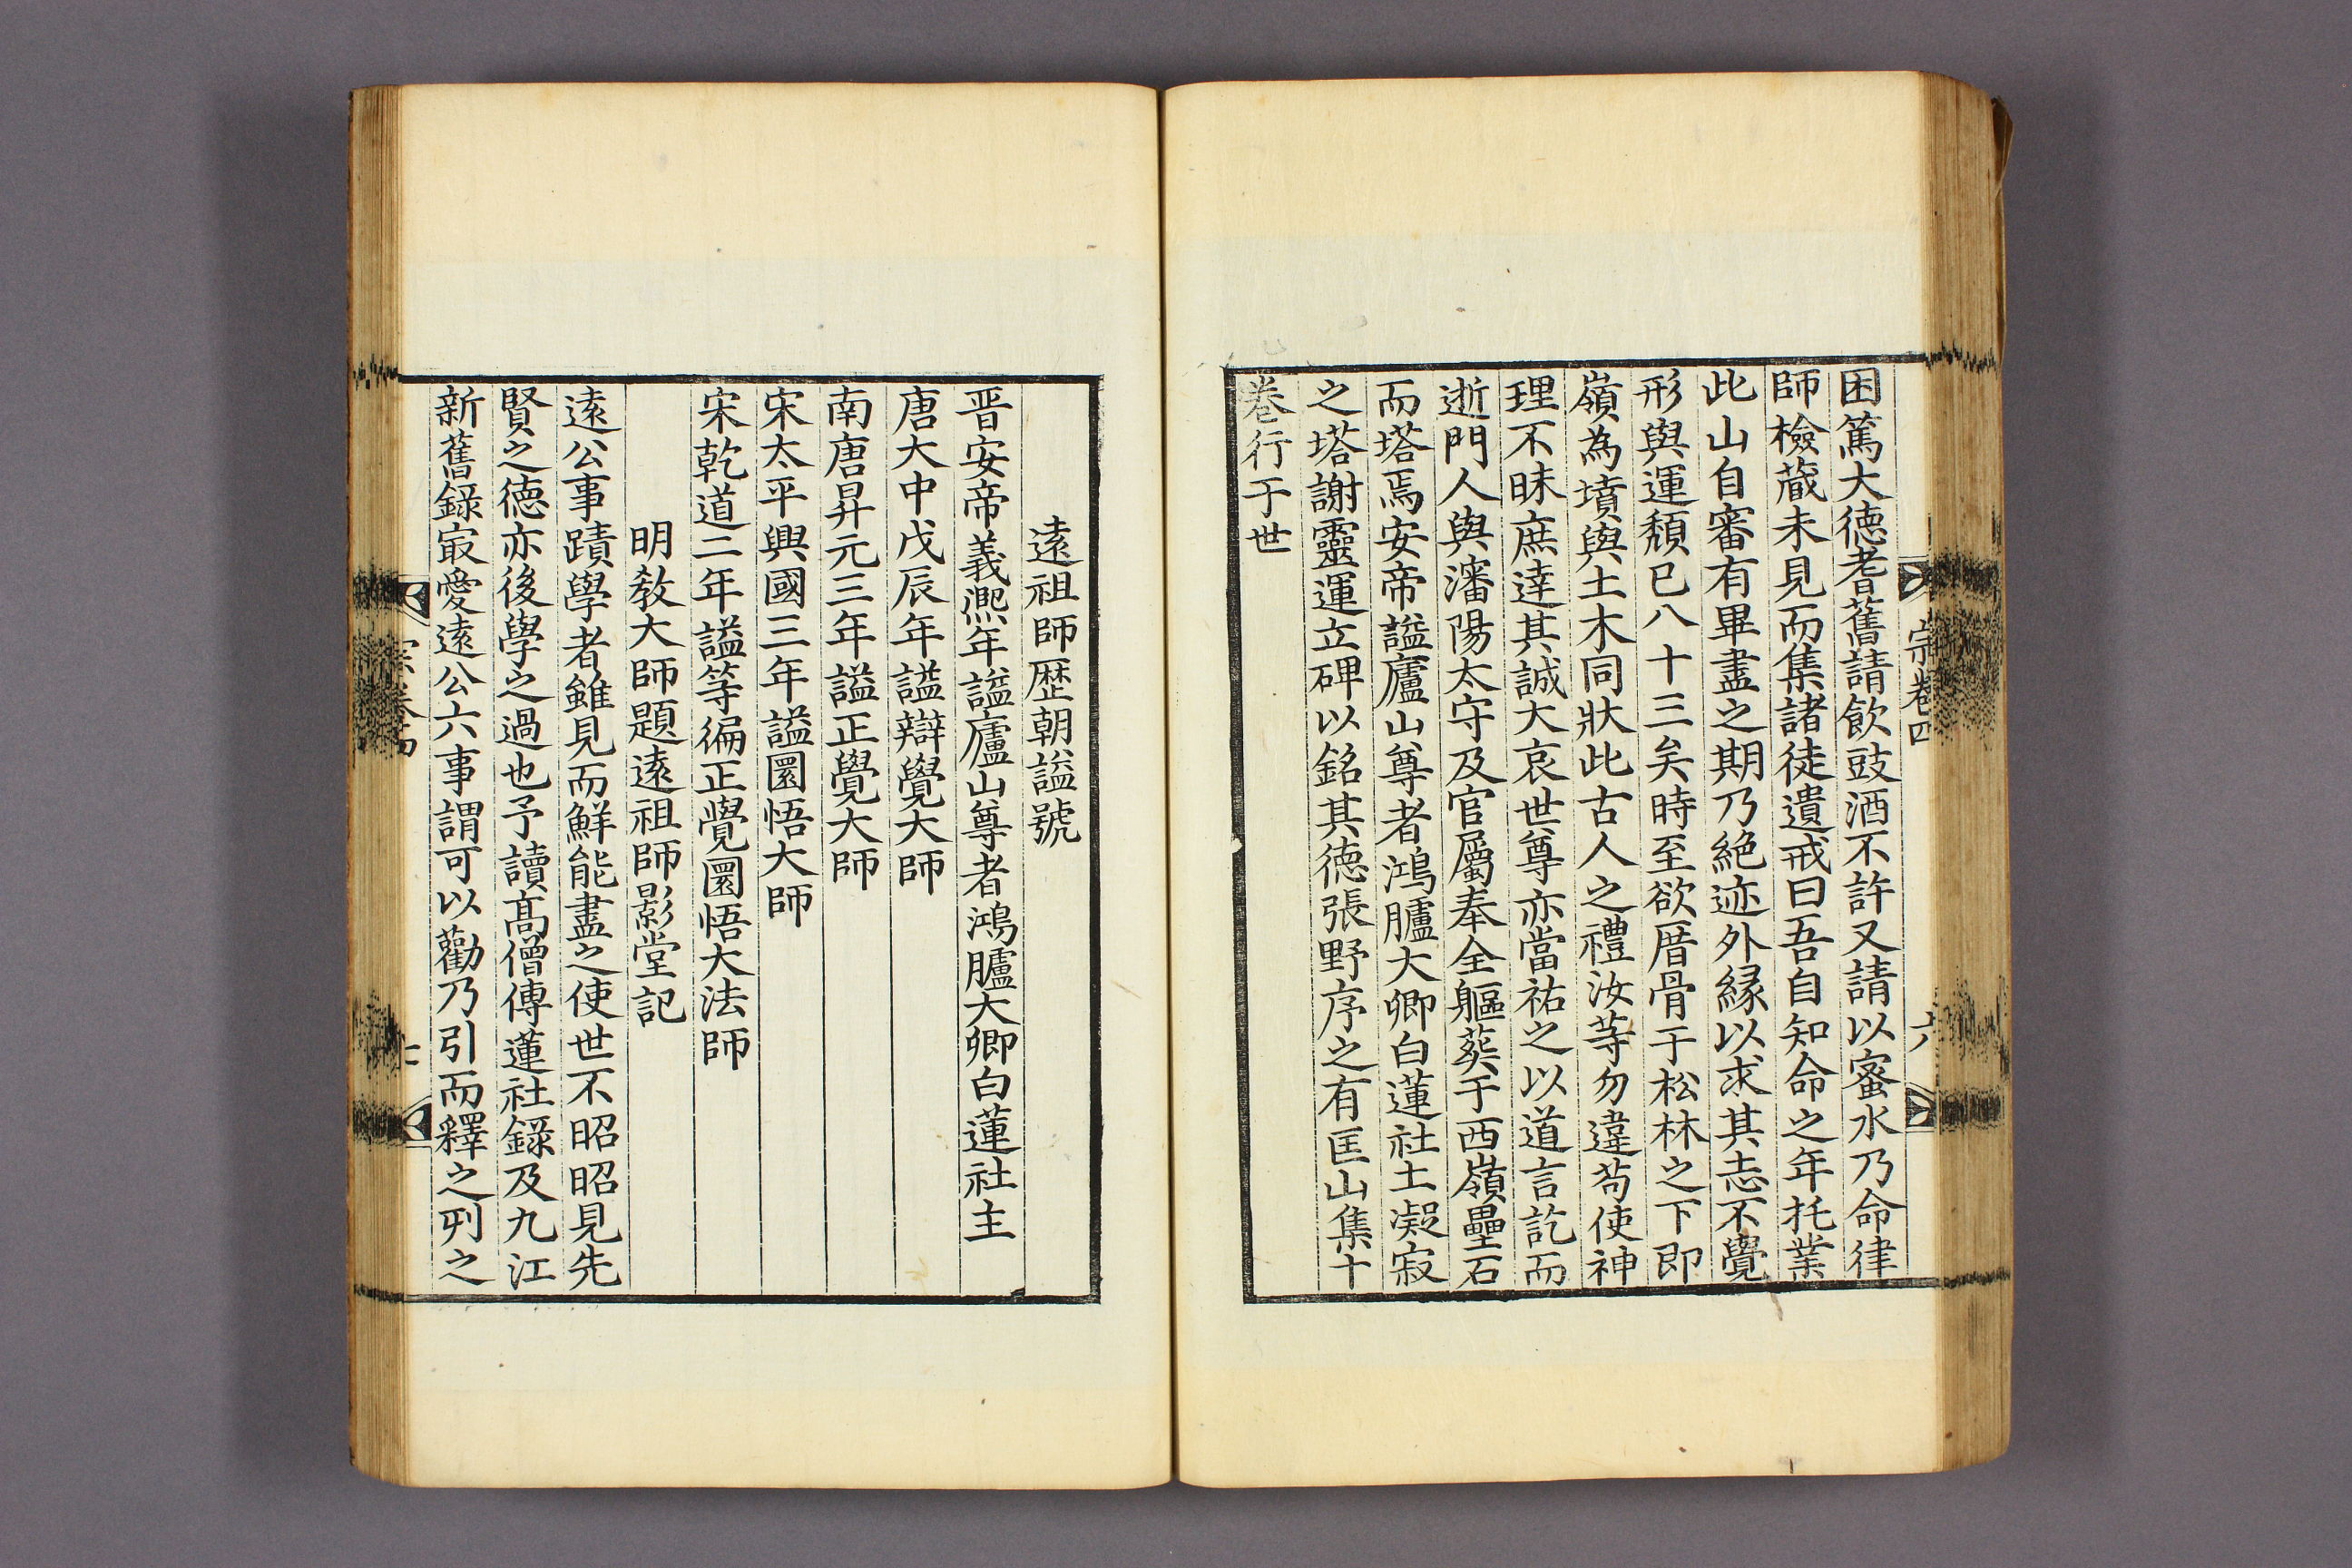 宗卷四
六
困篤大徳耆舊請飲豉酒不許又請以蜜水乃命律
師檢蔵未見而集諸徒遺戒曰吾自知命之年托業
此山自審有畢盡之期乃絶迹外縁以求其志不覺
形與運頹已八十三矣時至欲厝骨于松林之下即
嶺為墳與土木同狀此古人之禮汝等勿違苟使神
理不昧庶達其誠大哀世尊亦當祐之以道言訖而
逝門人與潘陽太守及官屬奉全軀葬于西嶺壘石
而塔焉安帝謚廬山尊者鴻臚大卿白蓮社主凝寂
之塔謝靈運立碑以銘其徳張野序之有匡山集十
卷行于世
遠祖師歴朝謚號
晋安帝義熈年謚廬山尊者鴻臚大卿白蓮社主
唐大中戊辰年謚辯覺大師
南唐昇元三年謚正覺大師
宋太平興國三年謚圜悟大師
宋乾道二年謚等徧正覺圜悟大法師
明教大師題遠祖師影堂記
遠公事蹟學者雖見而鮮能盡之使世不昭昭見先
賢之徳亦後學之過也予讀髙僧傳蓮社録及九江
新舊録㝡愛遠公六事謂可以勸乃引而釋之列之